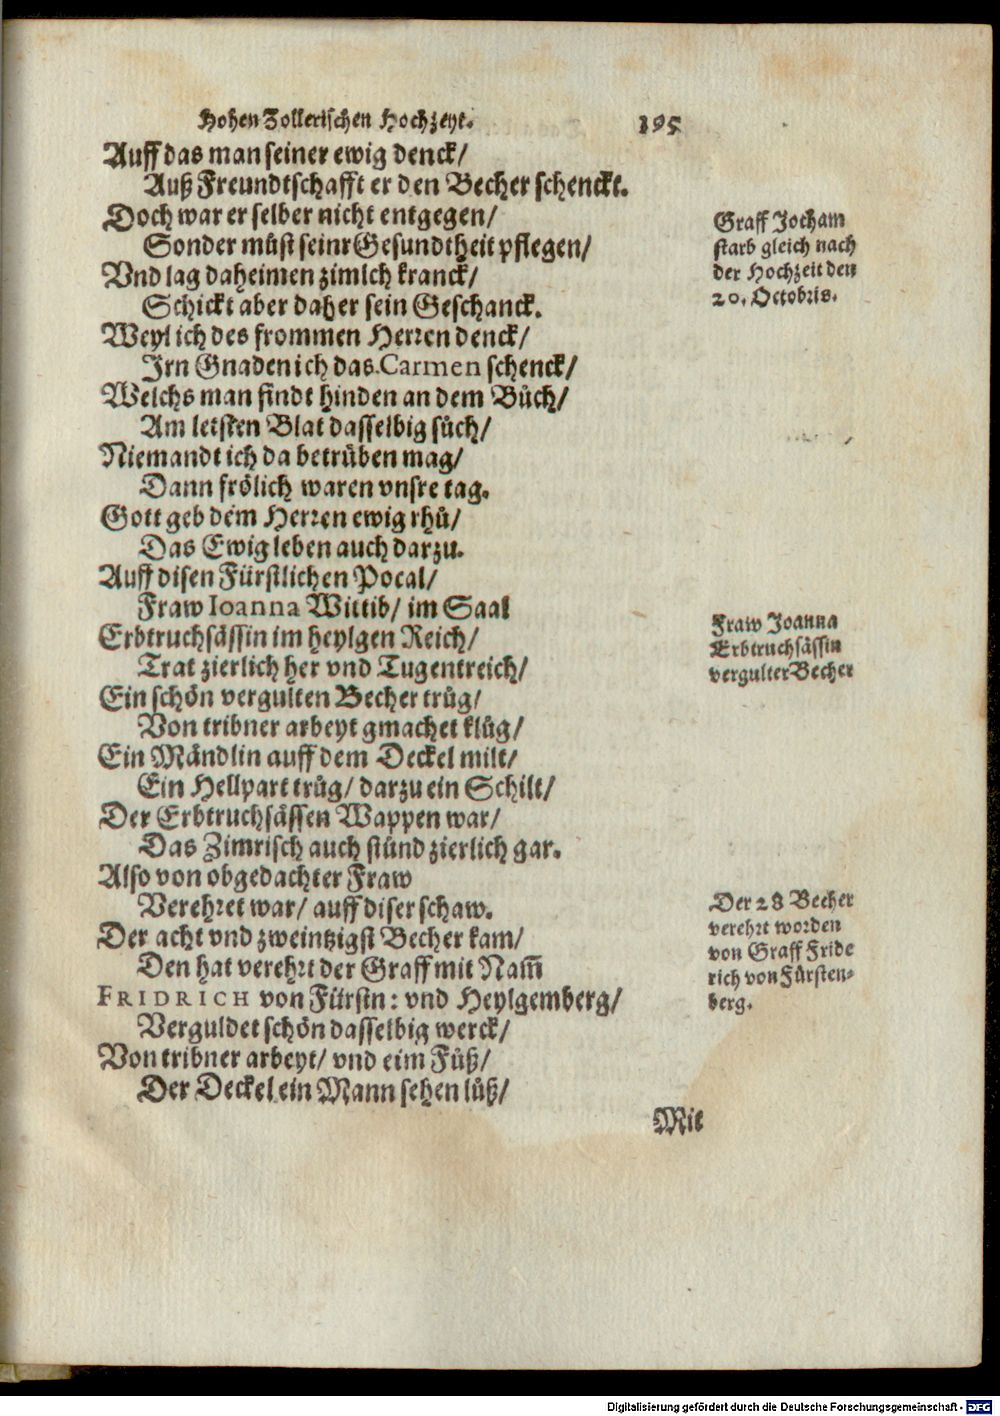 Hohen Zollerischen Hochzeyt. 195
Auff das man seiner ewig denck/
Auß Freundtschafft er den Becher schenckt.
Doch war er selber nicht entgegen/
Sonder můst seinr Gesundtheit pflegen/
Vnd lag daheimen zimlch kranck/
Schickt aber daher sein Geschanck.
Weyl ich des frommen Herren denck/
Irn Gnaden ich das Carmen schenck/
Welchs man findt hinden an dem Bůch/
Am letsten Blat dasselbig sůch/
Niemandt ich da betrüben mag/
Dann frölich waren vnsre tag.
Gott geb dem Herren ewig rhů/
Das Ewig leben auch darzu.
Auff disen Fürstlichen Pocal/
Fraw Ioanna Wittib/ im Saal
Erbtruchsässin im heylgen Reich/
Trat zierlich her vnd Tugentreich/
Ein schön vergulten Becher trůg/
Von tribner arbeyt gmachet klůg/
Ein Mändlin auff dem Deckel milt/
Ein Hellpart trůg/ darzu ein Schilt/
Der Erbtruchsässen Wappen war/
Das Zimrisch auch stůnd zierlich gar.
Also von obgedachter Fraw
Verehret war/ auff diser schaw.
Der acht vnd zweintzigst Becher kam/
Den hat verehrt der Graff mit Nam̄
FRIDRICH von Fürstn: vnd Heylgemberg/
Verguldet schön dasselbig werck/
Von tribner arbeyt/ vnd eim Fůß/
Der Deckel ein Mann sehen lůß/
Mit
Graff Jocham
starb gleich nach
der Hochzeit den
20. Octobris.
Fraw Joanna
Erbtruchsässin
vergulter Becher
Der 28 Becher
verehrt worden
von Graff Fride
rich von Fürsten-
berg.
Digitalisierung gefördert durch die Deutsche Forschungsgemeinschaft - DFG